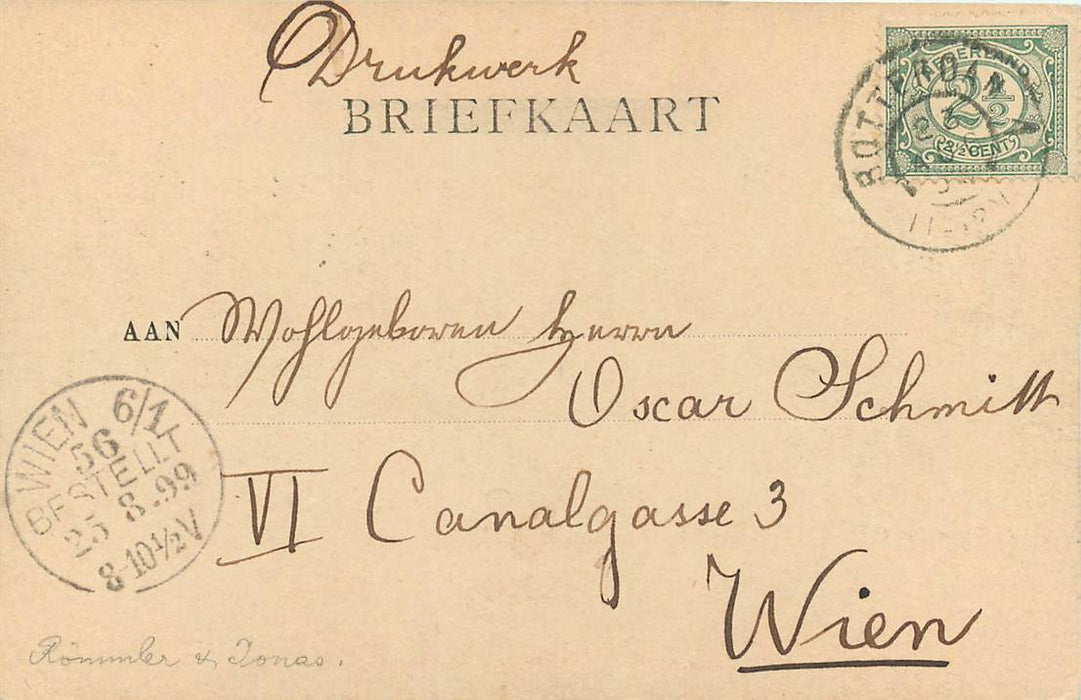 Drukwerk
BRIEFKAART
NEDERLAND
2½
2½ CENT
ROTTERDAM
11-12V
AAN Wohlgeboren Herrn
Oscar Schmitt
VI Canalgasse 3
Wien
WIEN 6/1
56
BESTELLT
25 8.99
8-10½V
Römmler & Jonas.